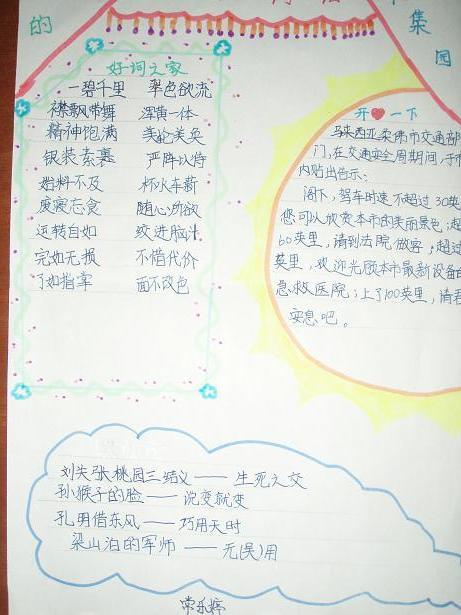 的
集
园
好词之家
一碧千里 翠色欲流
襟飘带舞 浑黄一体
精神饱满 美轮美奂
银装素裹 严阵以待
始料不及 杯水车薪
废寝忘食 随心所欲
运转自如 绞进脑汁
完如无损 不惜代价
了如指掌 面不改色
开一下
马来西亚柔佛市交通部
门,在交通安全周期间,于市
内贴出告示:
阁下,驾车时速不超过30英
您可以放赏本市的美丽景色;超
60英里,请到法院做客;超过
英里,欢迎光顾本市最新设备的
急救医院;上了100英里,请君
安息吧。
刘关张桃园三结义——生死之交
孙猴子的脸——说变就变
孔明借东风——巧用天时
梁山泊的军师——无(吴)用
常乐婷